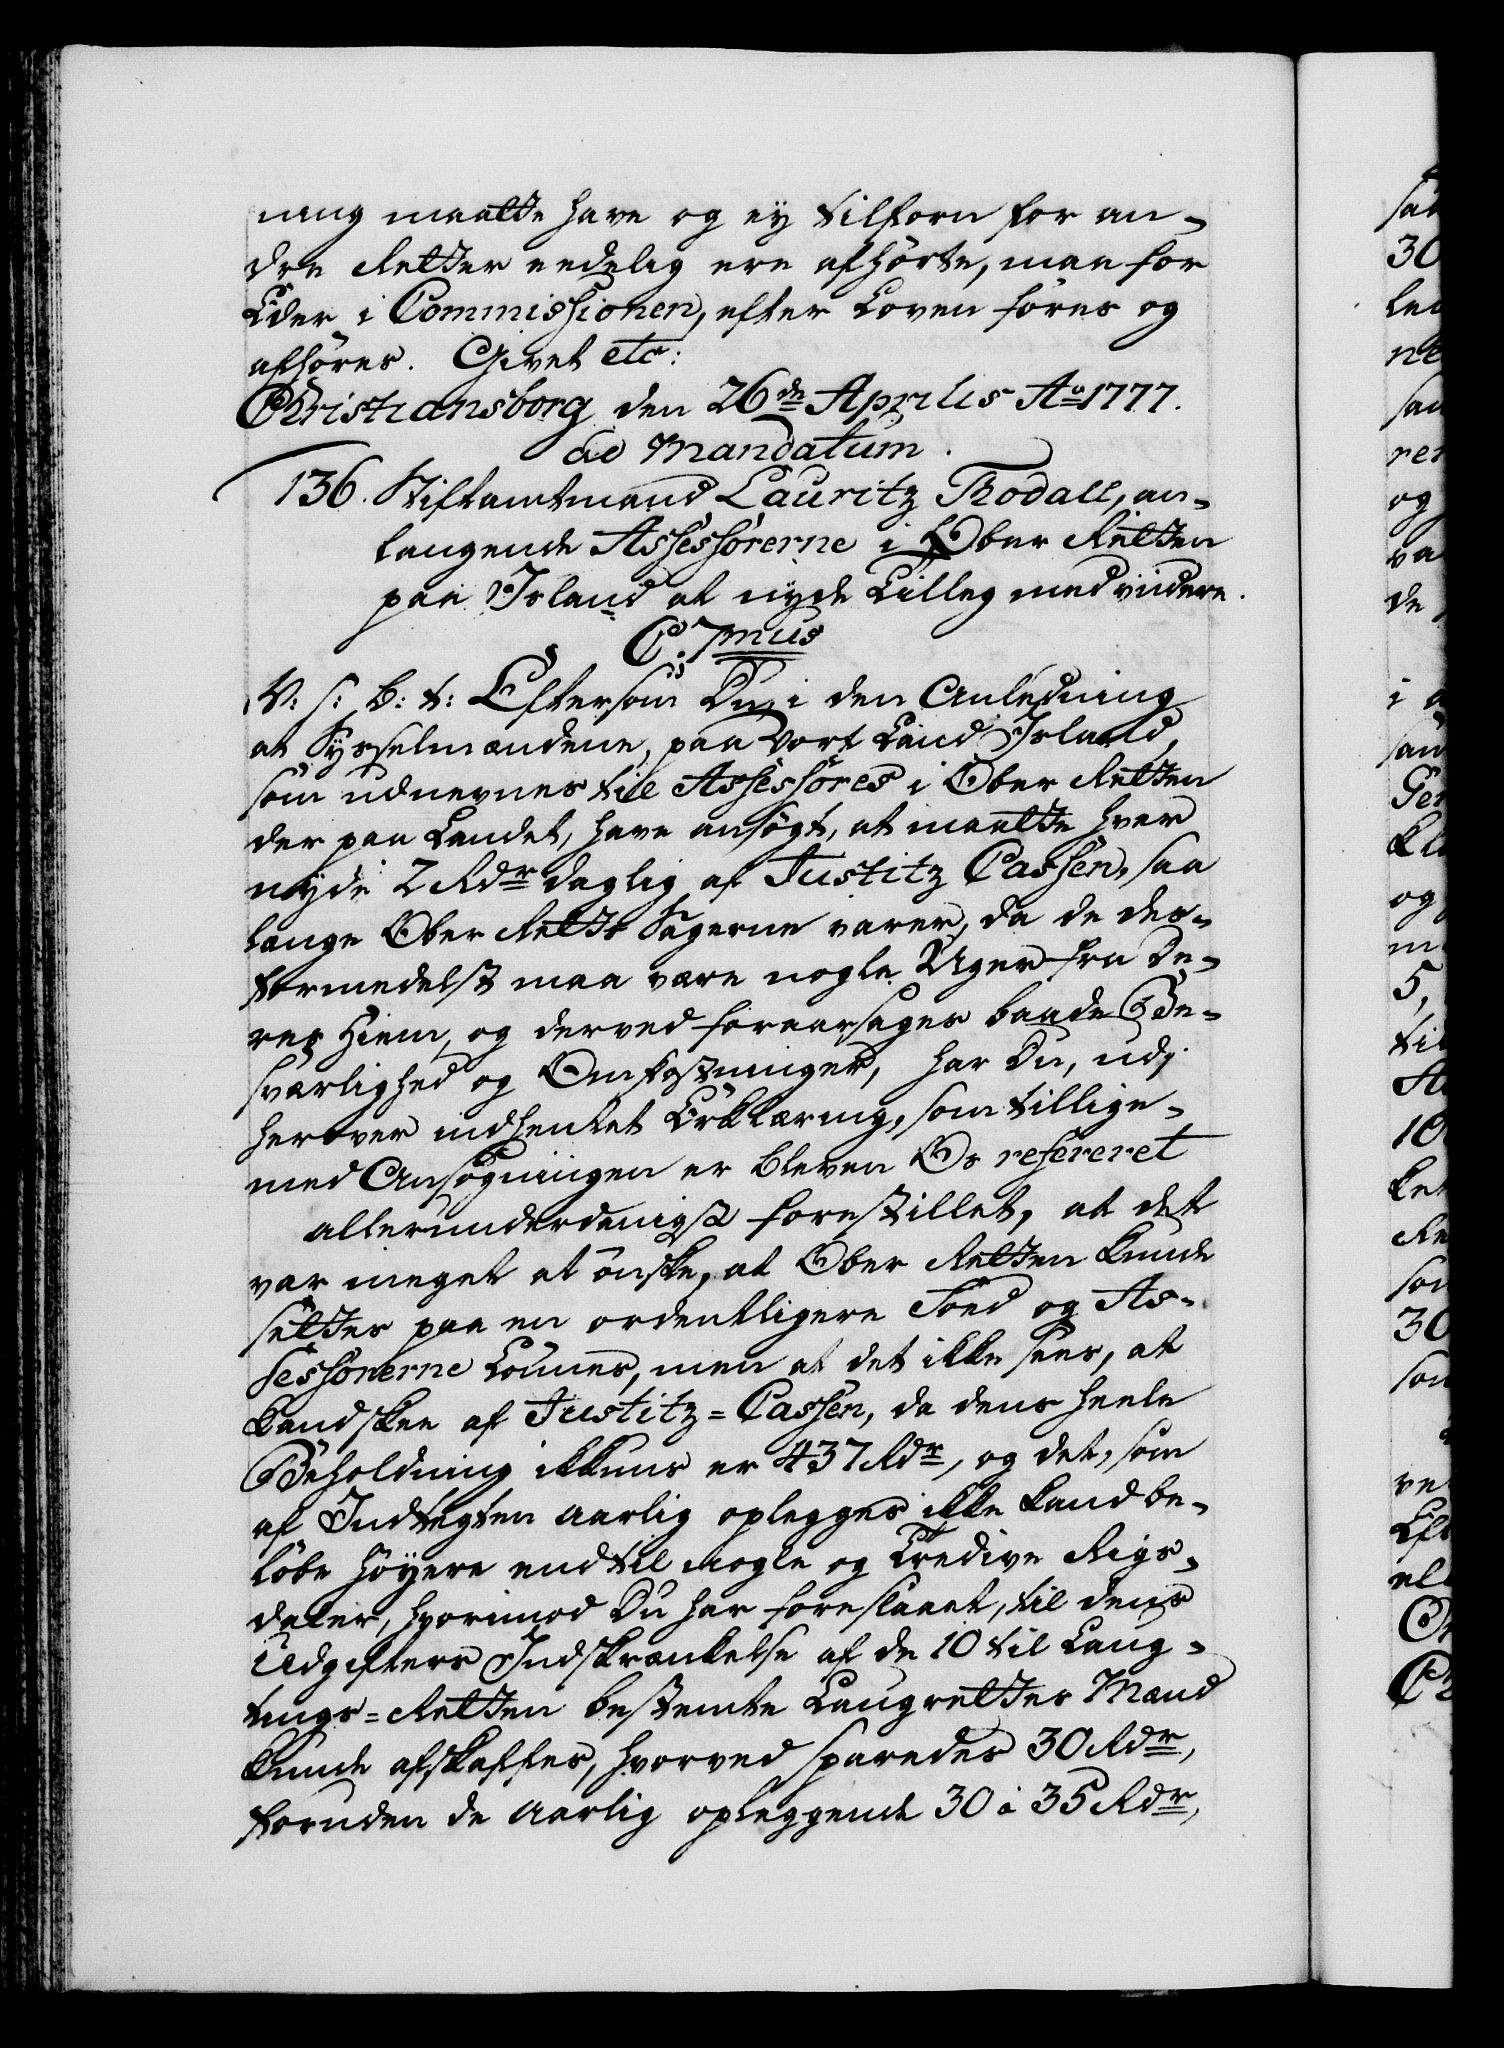 ning maatte have og ey tilforn for an-
dre Retter eedelig ere afhörte, maa for
Eder i Commissionen, efter Loven föres og
afhöres. Givet etc:
Christiansborg den 26de Aprilis Ao 1777.
ad Mandatum.
136. Stiftamtmand Lauritz Thodall, an-
langende Assessorerne i Ober Retten
paa Island at nyde Tillæg med videre.
C. 7mus
V: s: B: t: Eftersom Du, i den Anledning
at Sysselmændene, paa Vort Land Island,
som udnevnes til Assessores i Ober Retten
der paa Landet, have ansögt, at maatte hver
nyde 2 Rdr daglig af Justitz Cassen, saa
lange Ober Retts Sagerne varer, da de des-
formedelst maa være nogle Uger fra De-
res Hiem, og derved foraarsages baade Be-
sværlighed og Omkostninger, har Du, udj
herover indhentet Erklæring, som tillige-
med Ansögningen er bleven Os refereret
allerunderdanigst forestillet, at det
var meget at önske, at Ober Retten kunde
settes paa en ordentligere Foed og As-
sessorerne lönnes, men at det ikke sees, at
kand skee af Justitz-Cassen, da dens heele
Beholdning ikkuns er 437 Rdr, og det, som
af Indtegten aarlig oplegges ikke kand be-
löbe höyere end til nogle og tredive Rigs-
daler, hvorimod Du har foreslaaet, til dens
Udgifters Indskrænkelse af de 10 til Laug-
tings-Retten bestemte Laugrettes Mænd
kunde afskaffes, hvorved sparedes 30 Rdr,
foruden de aarlig opleggende 30 à 35 Rdr,